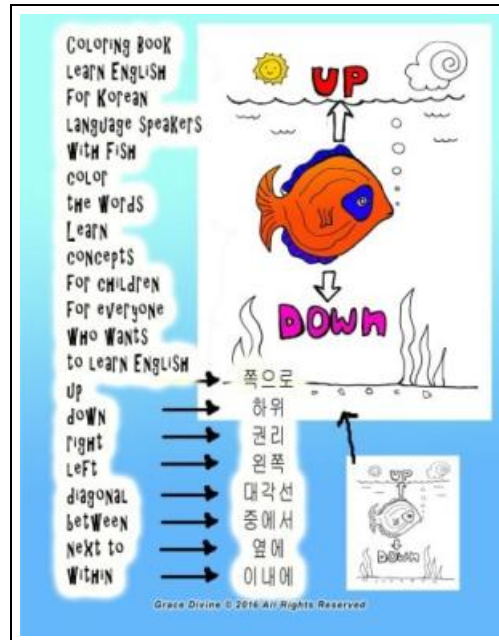 Coloring Book
Learn English
For Korean
Language Speakers
With Fish
color
the Words
Learn
concepts
For children
For everyone
Who Wants
to learn English
up
down
right
left
diagonal
between
next to
within
쪽으로
하위
권리
왼쪽
대각선
중에서
옆에
이내에
UP
DOWN
UP
DOWN
Grace Divine © 2016 All Rights Reserved